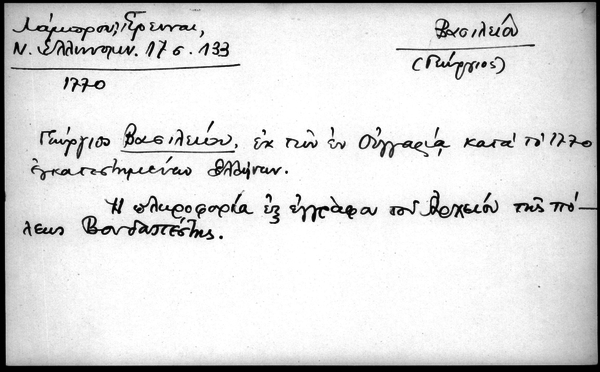 Λάμπρου, Ἔρευναι,
Ν. Ἑλληνομν. 17 σ. 133
1770
Βασιλείου
(Γεώργιος)
Γεώργιος Βασιλείου, ἐκ τῶν ἐν Οὑγγαρίᾳ κατὰ τὸ 1770
ἐγκατεστημένων Ἑλλήνων.
Ἡ πληροφορία ἐξ ἐγγράφου τοῦ Ἀρχείου τῆς πό-
λεως Βουδαπέστης.